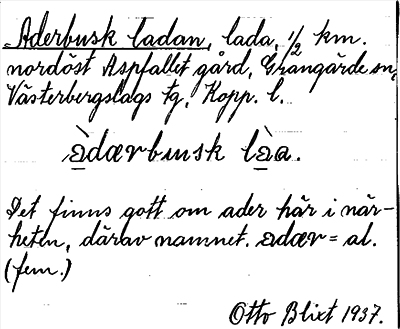 Aderbusk ladan, lada, 1/2 km.
nordöst Aspfallet gård, Grangärde sn,
Västerbergslags tg, Kopp. l.
àdærbusk làa.
Det finns gott om ader här i när-
heten, därav namnet. adær = al.
(fem.)
Otto Blixt 1937.